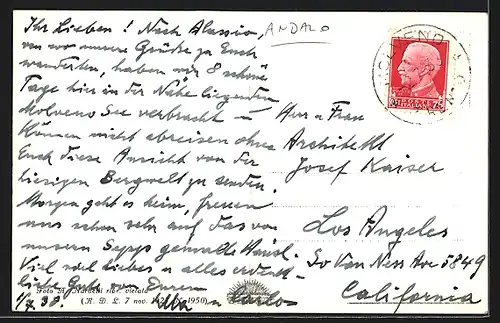 Ihr Lieben! Nach Alassio,
von wo unsere Grüße zu Euch
wanderten, haben wir 8 schöne
Tage hier in der Nähe liegenden
Molveno See verbracht –
Können nicht abreisen ohne
Euch diese Ansicht von der
hiesigen Bergwelt zu senden.
Morgen geht es heim, freuen
uns schon sehr auf das von
unserm Sepp gemalte Häusl.
Viel viel Liebes u. alles erdenkl.
liebe Gute von Euren
u. Carlo
ANDALO
MOLVENO
Herr u Frau
Architekt
Josef Kaiser
Los Angeles
So Van Ness Ave 3849
California
Foto ripr. vietata
(R. D. L. 7 nov. 1925 N. 1950)
38.